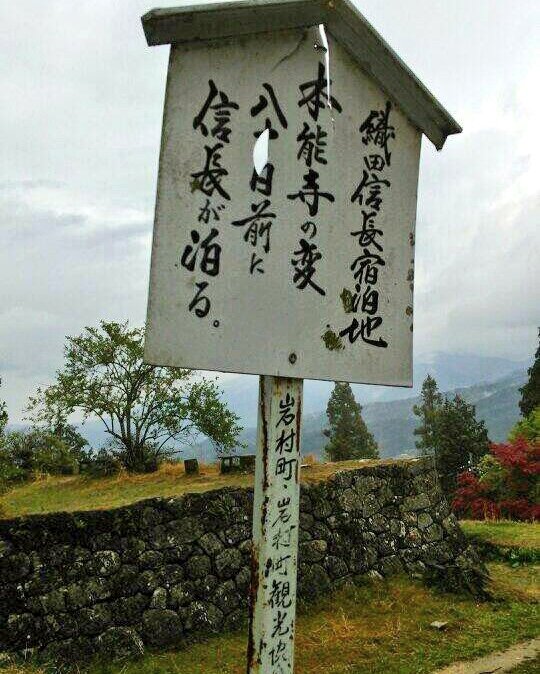 織田信長宿泊地
本能寺の変
八十日前に
信長が泊る。
岩村町・岩村町観光協